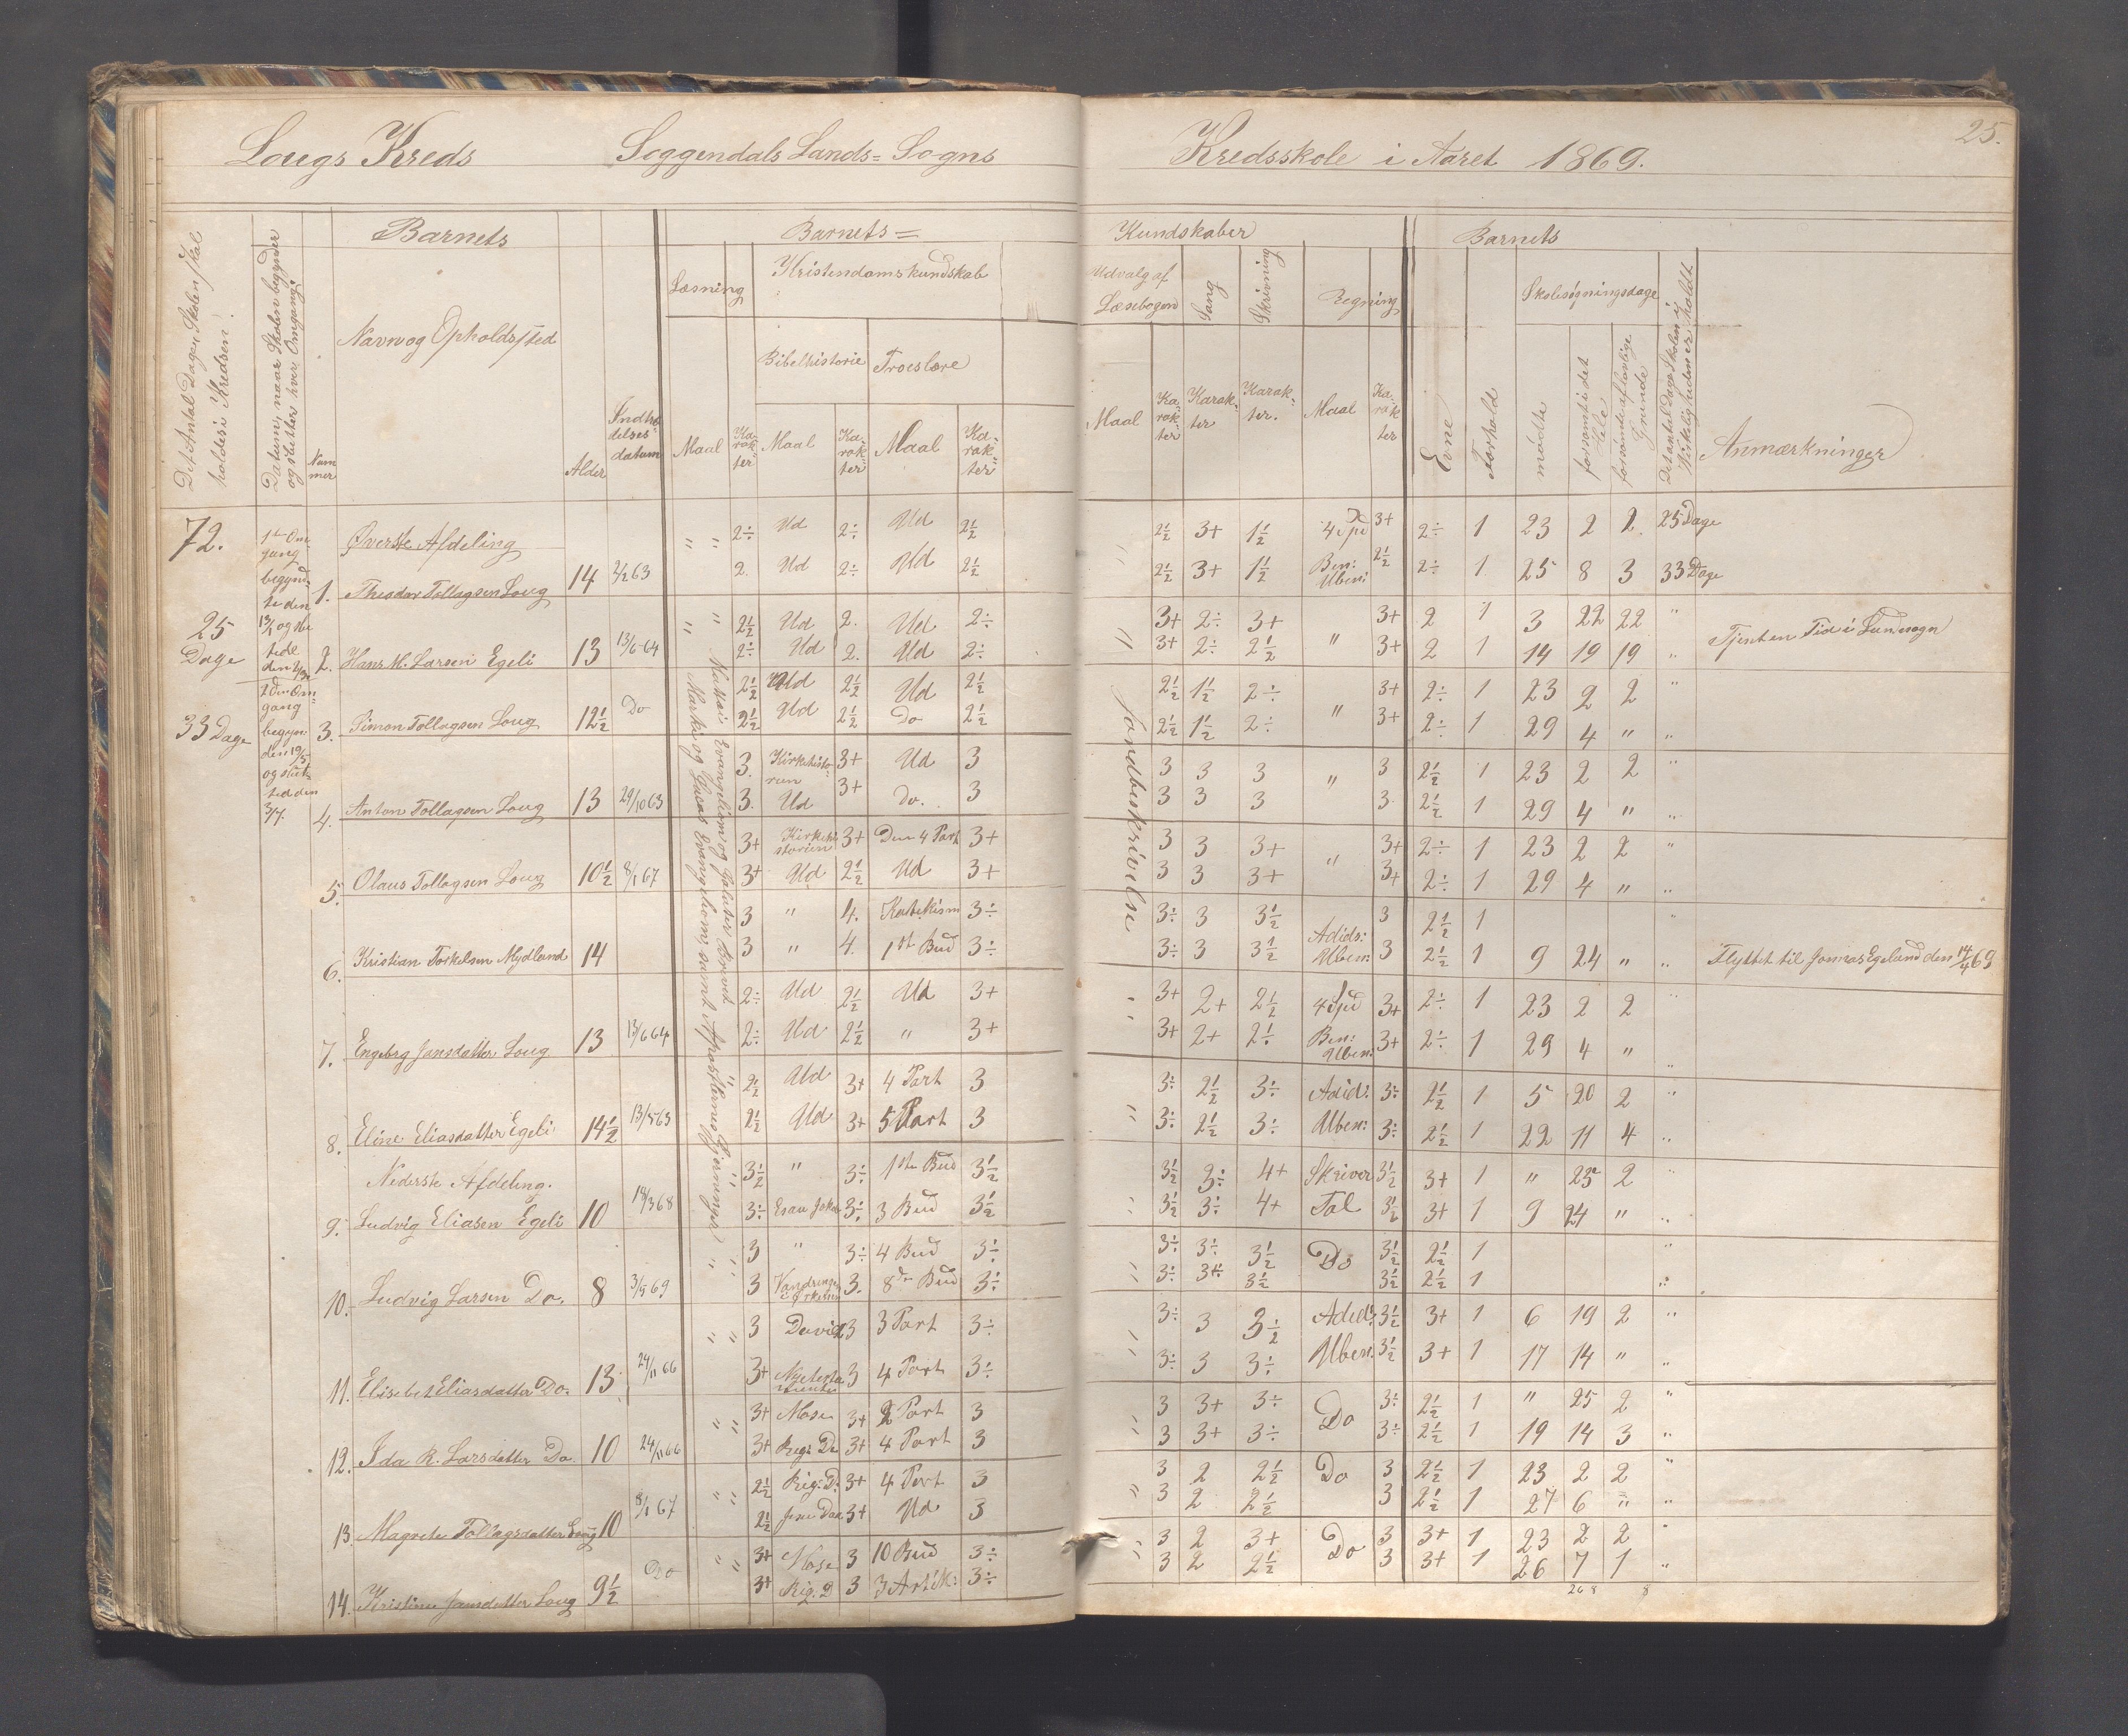 25.
Lougs Kreds Soggendals Lands=Sogns Kredsskole i Aaret 1869.
Barnets
Barnets=
Kundskaber
Barnets
Det Antal Dage, Skolen skal holdes i Kredsen.
Datum, naar Skolen begynder og slutter hver Omgang.
Nummer
Navn og Opholdssted
Alder
Indtrædelsesdatum
Læsning
Kristendomskundskab
Bibelhistorie
Troeslære
Maal
Karakter
Maal
Karakter
Maal
Karakter
Udvalg af Læsebogen
Sang
Skrivning
Regning
Maal
Karakter
Karakter
Karakter.
Maal
Karakter
Evne
Forhold
Skolesøgningsdage
mødte
forsømt i det Hele
forsømt af lovlige Grunde
Det antal Dage Skolen i Virkeligheden er holdt
Anmærkninger
72.
25 Dage
33 Dage
1ste Omgang begyndte den 13/1 og sluttede den
2den Omgang begyn: den 19/5 og slutted den 3/7.
Matthæi Evangelium og Galater Brevet
Marki og Lucas Evangelium, samt Apostlernes Gjerninger
Jordbeskrivelse
Øverste Afdeling
1. Theodor Tollagsen Loug 14 2/2 63
2÷ Ud 2÷ Ud 2½ 2½ 3+ 1½ 4 Spd 3+ 2÷ 1 23 2 2. 25 Dage
2. Ud 2÷ Ud 2½ 2½ 3+ 1½ Ben: Uben: 2½ 2÷ 1 25 8 3 33 Dage
2. Hans M. Larsen Egeli 13 13/6 64
2½ Ud 2. Ud 2÷ 3+ 2÷ 3+ 3+ 2 1 3 22 22 "
2÷ Ud 2. Ud 2÷ 3+ 2÷ 2½ " 3+ 2 1 14 19 19 " Tjent en Tid i Lunesogn
3. Simon Tollagsen Loug 12½ Do
2½ Ud 2½ Ud 2½ 2½ 1½ 2÷ 3+ 2÷ 1 23 2 2 "
2½ Ud 2½ Do 2½ 2½ 1½ 2÷ " 3+ 2÷ 1 29 4 " "
4. Anton Tollagsen Loug 13 29/10 63
3. Kirkehistorien 3+ Ud 3 3 3 3 " 3 2½ 1 23 2 2 "
3. Ud 3+ Do. 3 3 3 3 3 2½ 1 29 4 " "
5. Olaus Tollagsen Loug 10½ 8/1 67
3+ Kirkehistorien 3+ Den 4 Part 3+ 3 3 3+ 3+ 2÷ 1 23 2 2 "
3+ Ud 2½ Ud 3+ 3 3 3+ " 3+ 2÷ 1 29 4 " "
6. Kristian Torkelsen Mydland 14
3 " 4. Katekism 3÷ 3÷ 3 3½ 3 2½ 1 "
3 " 4. 1ste Bud 3÷ 3÷ 3 3½ Adids: Uben: 3 2½ 1 9 24 " " Flyttet til Jonas Egeland den 14/4 69
7. Engebrg Jansdatter Loug 13 13/6 64
2÷ Ud 2½ Ud 3+ 3+ 2+ 2½ 4 Spd 3+ 2÷ 1 23 2 2 "
2÷ Ud 2½ " 3+ 3+ 2+ 2½ Ben: Uben: 3+ 2÷ 1 29 4 " "
8. Eline Eliasdatter Egeli 14½
2½ Ud 3+ 4 Part 3 3÷ 2½ 3÷ Adid: 3÷ 2½ 1 5 20 2 "
2½ Ud 3+ 5 Part 3 3÷ 2½ 3÷ Uben: 3÷ 2½ 1 22 11 4 "
Nederste Afdeling.
9. Ludvig Eliasen Egeli 10
3½ " 3÷ 1ste Bud 3½ 3½ 3÷ 4+ Skriver 3½ 3+ 1 " 2
3÷ Esau Jakob 3÷ 3 Bud 3½ 3½ 3÷ 4+ Tal 3½ 3+ 1 9 24 " "
10. Ludvig Larsen Do. 8
3 " 3÷ 4 Bud 3÷ 3÷ 3÷ 3½ Do 3½ 2½ 1 "
3 Vandringen i Ørkenen 3. 8de Bud 3÷ 3÷ 3½ 3½ 2½ 1 "
11. Elisebet Eliasdatter Do. 13 24/11 66
3 David 3 3 Part 3÷ 3÷ 3 3½ Adid: 3½ 3+ 1 6 19 2 "
3+ 3 4 Part 3÷ 3÷ 3 3÷ Uben: 3½ 3+ 1 17 14 " "
12. Ida R. Larsdatter Do. 10 24/11 66
3+ Mose 3+ 2 Part 3 3 3+ 3÷ Do 3÷ 2½ 1 " 25 2 "
3+ Rigs D: 3+ 4 Part 3 3 3+ 3÷ 3÷ 2½ 1 19 14 3 "
13. Magrete Tollagsdatter Loug 10 8/1 67
2½ Rig: D: 3+ 4 Part 3 3 2 2½ Do 3 2½ 1 23 2 2 "
2½ 3+ Ud 3 3 2 2½ 3 2½ 1 27 6 " "
14. Kristine Jansdatter Loug 9½ Do
3+ Mose 3 10 Bud 3÷ 3 2 3+ Do 3 3+ 1 23 2 2 "
3+ Rig. D 3 3 Artik: 3÷ 3 2 2½ 3 3+ 1 26 7 1 "
268 8